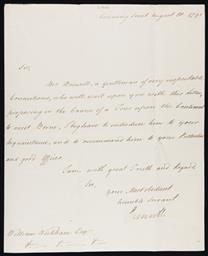 Downing Street August 10. 1795
Sir,
Mr. Boswell, a gentleman of very respectable
Connections, who will wait upon you with this letter,
proposing in the course of a Tour upon the Continent
to visit Berne, I beg leave to introduce him to your
acquaintance, and to recommend him to your Protection
and good Offices.
I am with great Truth and Regard
Sir,
your Most obedient
humble Servant
Grenville
William Wickham Esqr.